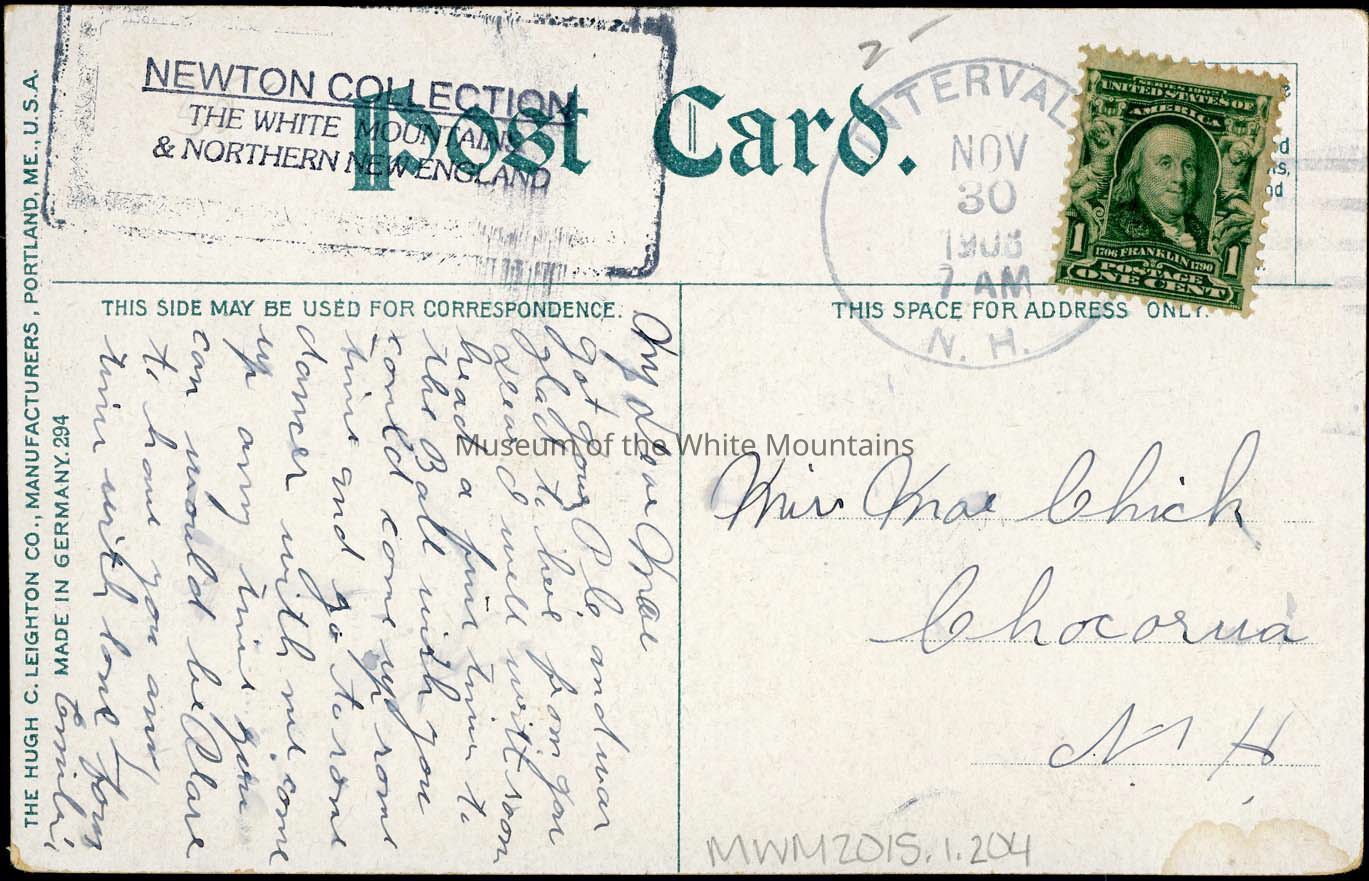 NEWTON COLLECTION
THE WHITE MOUNTAINS
& NORTHERN NEW ENGLAND
Post Card.
2 -
INTERVAL
NOV
30
1908
7 AM
N. H.
SERIES 1902
UNITED STATES OF
AMERICA
1706 FRANKLIN 1790
1 1
POSTAGE
ONE CENT
THIS SIDE MAY BE USED FOR CORRESPONDENCE.
THIS SPACE FOR ADDRESS ONLY.
THE HUGH C. LEIGHTON CO., MANUFACTURERS, PORTLAND, ME., U.S.A.
MADE IN GERMANY. 294
My dear Mae
got your P.C. and was
glad to hear from you
dear I will writt soon
head a fine time to
the Ball with you
could come up some
time and go to some
dance with me come
up any time you
can would be Glare
to have you any
time with love from
Miss Mae Chick
Chocorua
N H
Museum of the White Mountains
MWM2015.1.204